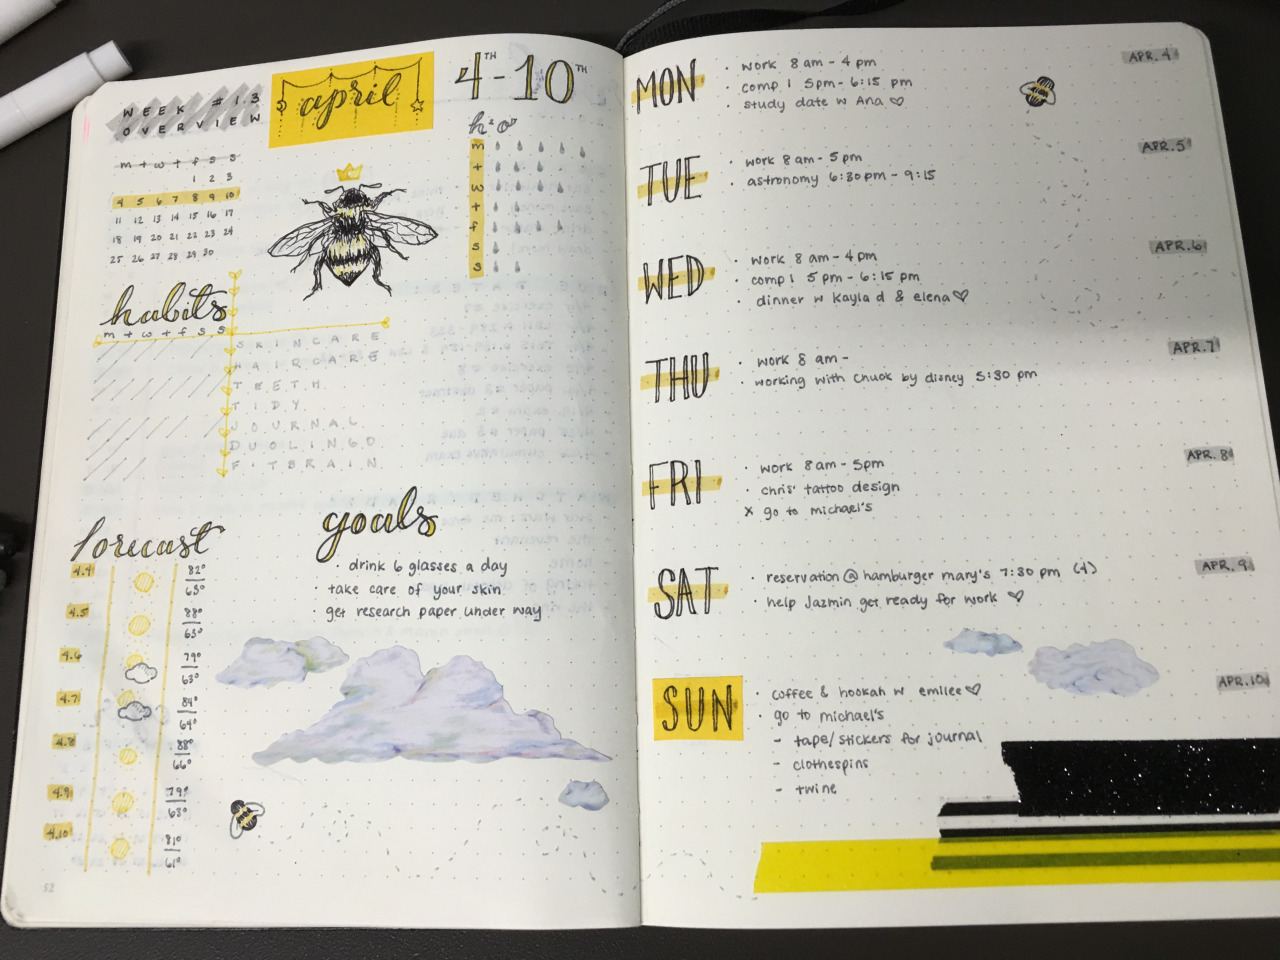 WEEK #13
OVERVIEW
april
4TH-10TH
m t w t f s s
1 2 3
4 5 6 7 8 9 10
11 12 13 14 15 16 17
18 19 20 21 22 23 24
25 26 27 28 29 30
h2o
m
t
w
t
f
s
s
habits
m t w t f s s
SKINCARE
HAIRCARE
TEETH
TIDY
JOURNAL
DUOLINGO
FITBRAIN
forecast
4.4 82° 65°
4.5 88° 63°
4.6 79° 63°
4.7 84° 64°
4.8 88° 66°
4.9 79° 63°
4.10 81° 61°
goals
· drink 6 glasses a day
· take care of your skin
· get research paper under way
52
MON
APR. 4
· work 8 am - 4 pm
· comp 1 5pm - 6:15 pm
· study date w Ana ♡
TUE
APR. 5
· work 8 am - 5 pm
· astronomy 6:30pm - 9:15
WED
APR. 6
· work 8 am - 4 pm
· comp 1 5 pm - 6:15 pm
· dinner w Kayla d & elena ♡
THU
APR. 7
· work 8 am -
· working with Chuck by disney 5:30 pm
FRI
APR. 8
· work 8 am - 5pm
· chris' tattoo design
x go to michael's
SAT
APR. 9
· reservation @ hamburger mary's 7:30 pm (4)
· help Jazmin get ready for work ♡
SUN
APR. 10
· coffee & hookah w emilee ♡
· go to michael's
- tape/stickers for journal
- clothespins
- twine